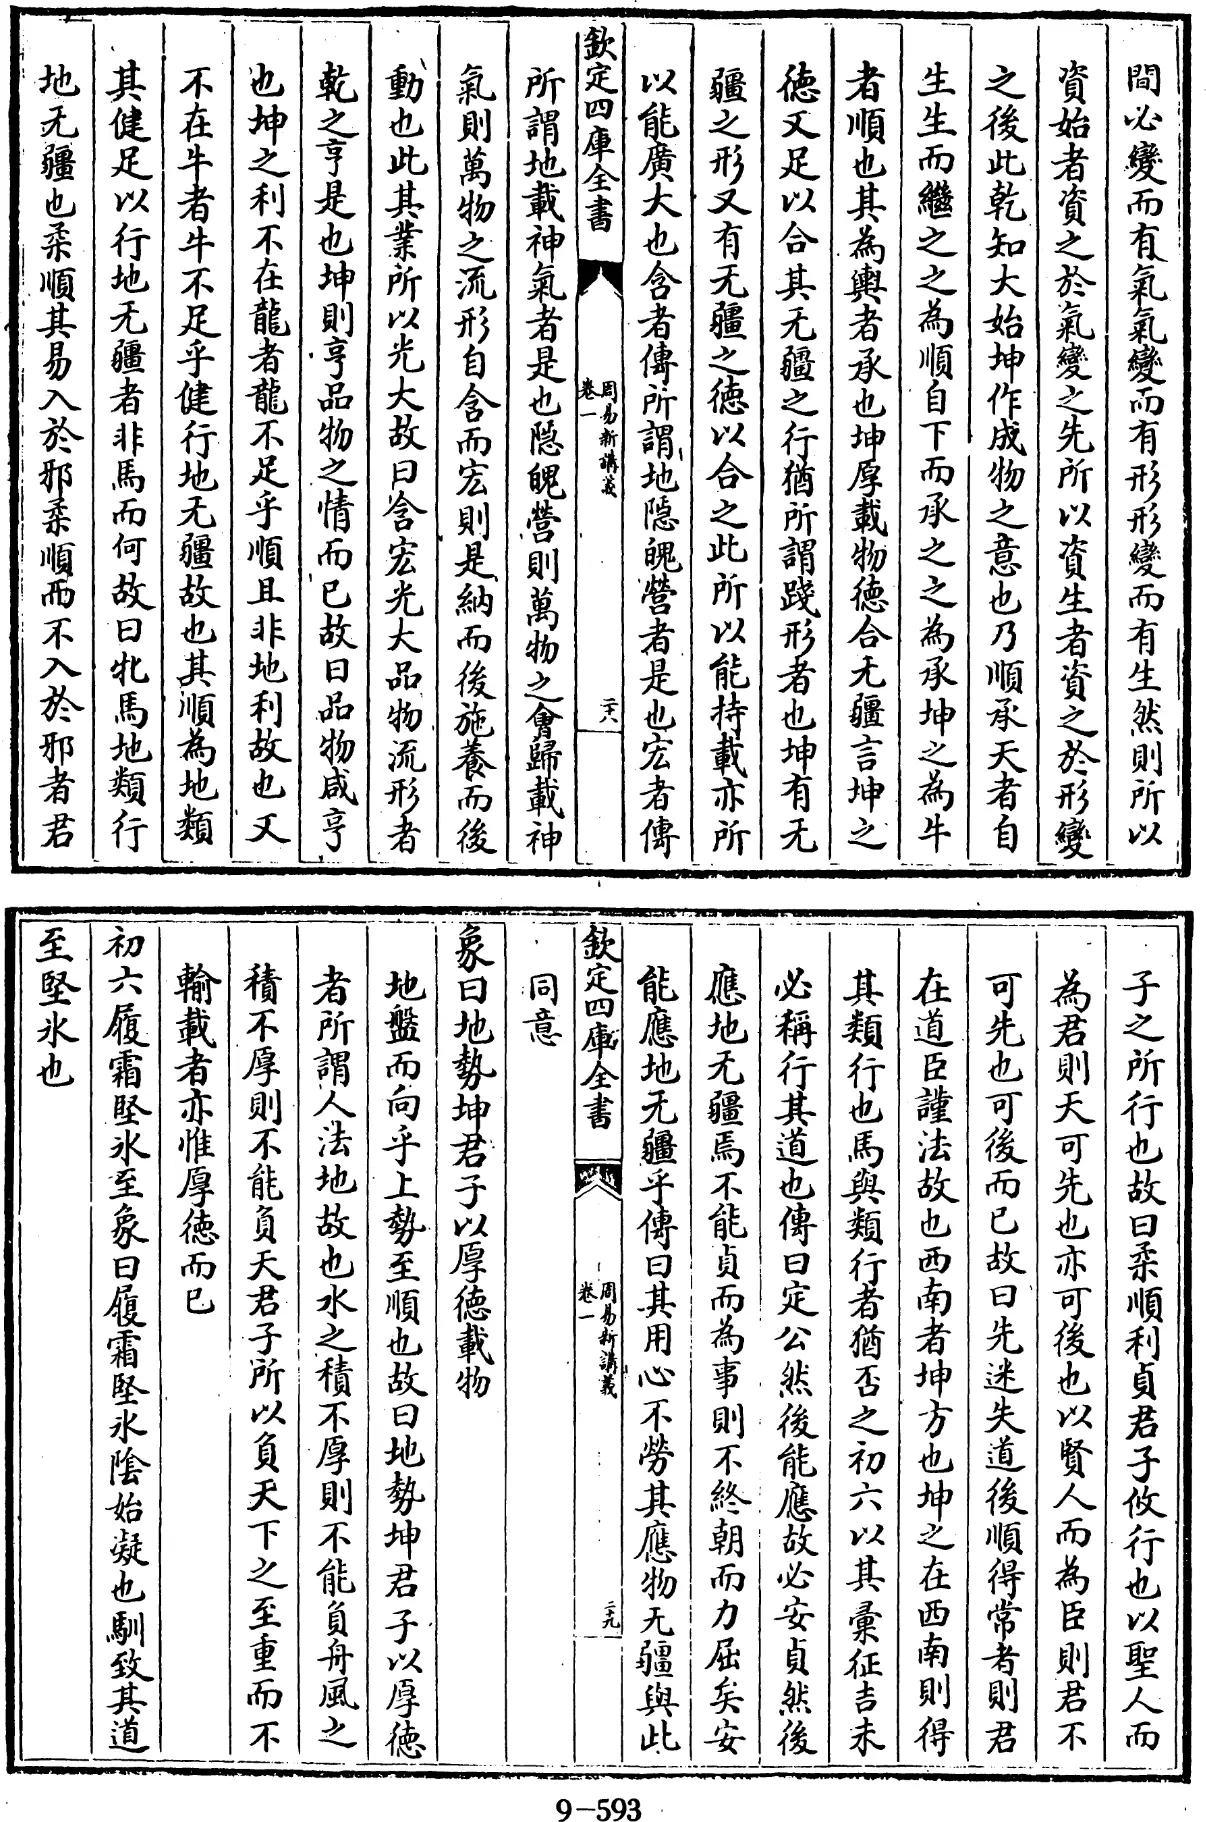 間必變而有氣氣變而有形形變而有生然則所以
資始者資之於氣變之先所以資生者資之於形變
之後此乾知大始坤作成物之意也乃順承天者自
生生而繼之之為順自下而承之之為承坤之為牛
者順也其為輿者承也坤厚載物德合无疆言坤之
德又足以合其无疆之行猶所謂踐形者也坤有无
疆之形又有无疆之德以合之此所以能持載亦所
以能廣大也含者傳所謂地隱魄營者是也宏者傳
欽定四庫全書
周易新講義
卷一
二十八
所謂地載神氣者是也隱魄營則萬物之會歸載神
氣則萬物之流形自含而宏則是納而後施養而後
動也此其業所以光大故曰含宏光大品物流形者
乾之亨是也坤則亨品物之情而已故曰品物咸亨
也坤之利不在龍者龍不足乎順且非地利故也又
不在牛者牛不足乎健行地无疆故也其順為地類
其健足以行地无疆者非馬而何故曰牝馬地類行
地无疆也柔順其易入於邪柔順而不入於邪者君
子之所行也故曰柔順利貞君子攸行也以聖人而
為君則天可先也亦可後也以賢人而為臣則君不
可先也可後而已故曰先迷失道後順得常者則君
在道臣謹法故也西南者坤方也坤之在西南則得
其類行也馬與類行者猶否之初六以其彙征吉未
必稱行其道也傳曰定公然後能應故必安貞然後
應地无疆焉不能貞而為事則不終朝而力屈矣安
能應地无疆乎傳曰其用心不勞其應物无疆與此
欽定四庫全書
周易新講義
卷一
二十九
同意
象曰地勢坤君子以厚德載物
地盤而向乎上勢至順也故曰地勢坤君子以厚德
者所謂人法地故也水之積不厚則不能負舟風之
積不厚則不能負天君子所以負天下之至重而不
輸載者亦惟厚德而已
初六履霜堅氷至象曰履霜堅氷陰始凝也馴致其道
至堅氷也
9-593